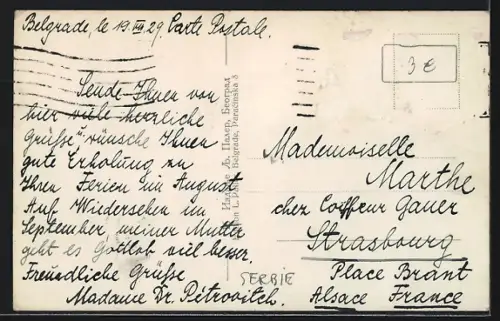 Belgrade, le 19.VII 29. Carte Postale.
3 €
Sende Ihnen von
hier viele herzliche
Grüße, wünsche Ihnen
gute Erholung zu
Ihren Ferien im August
Auf Wiedersehen im
September, meiner Mutter
geht es Gottlob viel besser.
Freundliche Grüße
Madame Dr. Petrovitch.
Београд
Belgrade,
Mademoiselle
Marthe
chez Coiffeur Gauer
Strasbourg
Place Brant
Alsace France
SERBIE